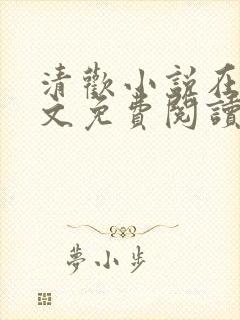 清歡小說在
文免費閱讀
夢小步